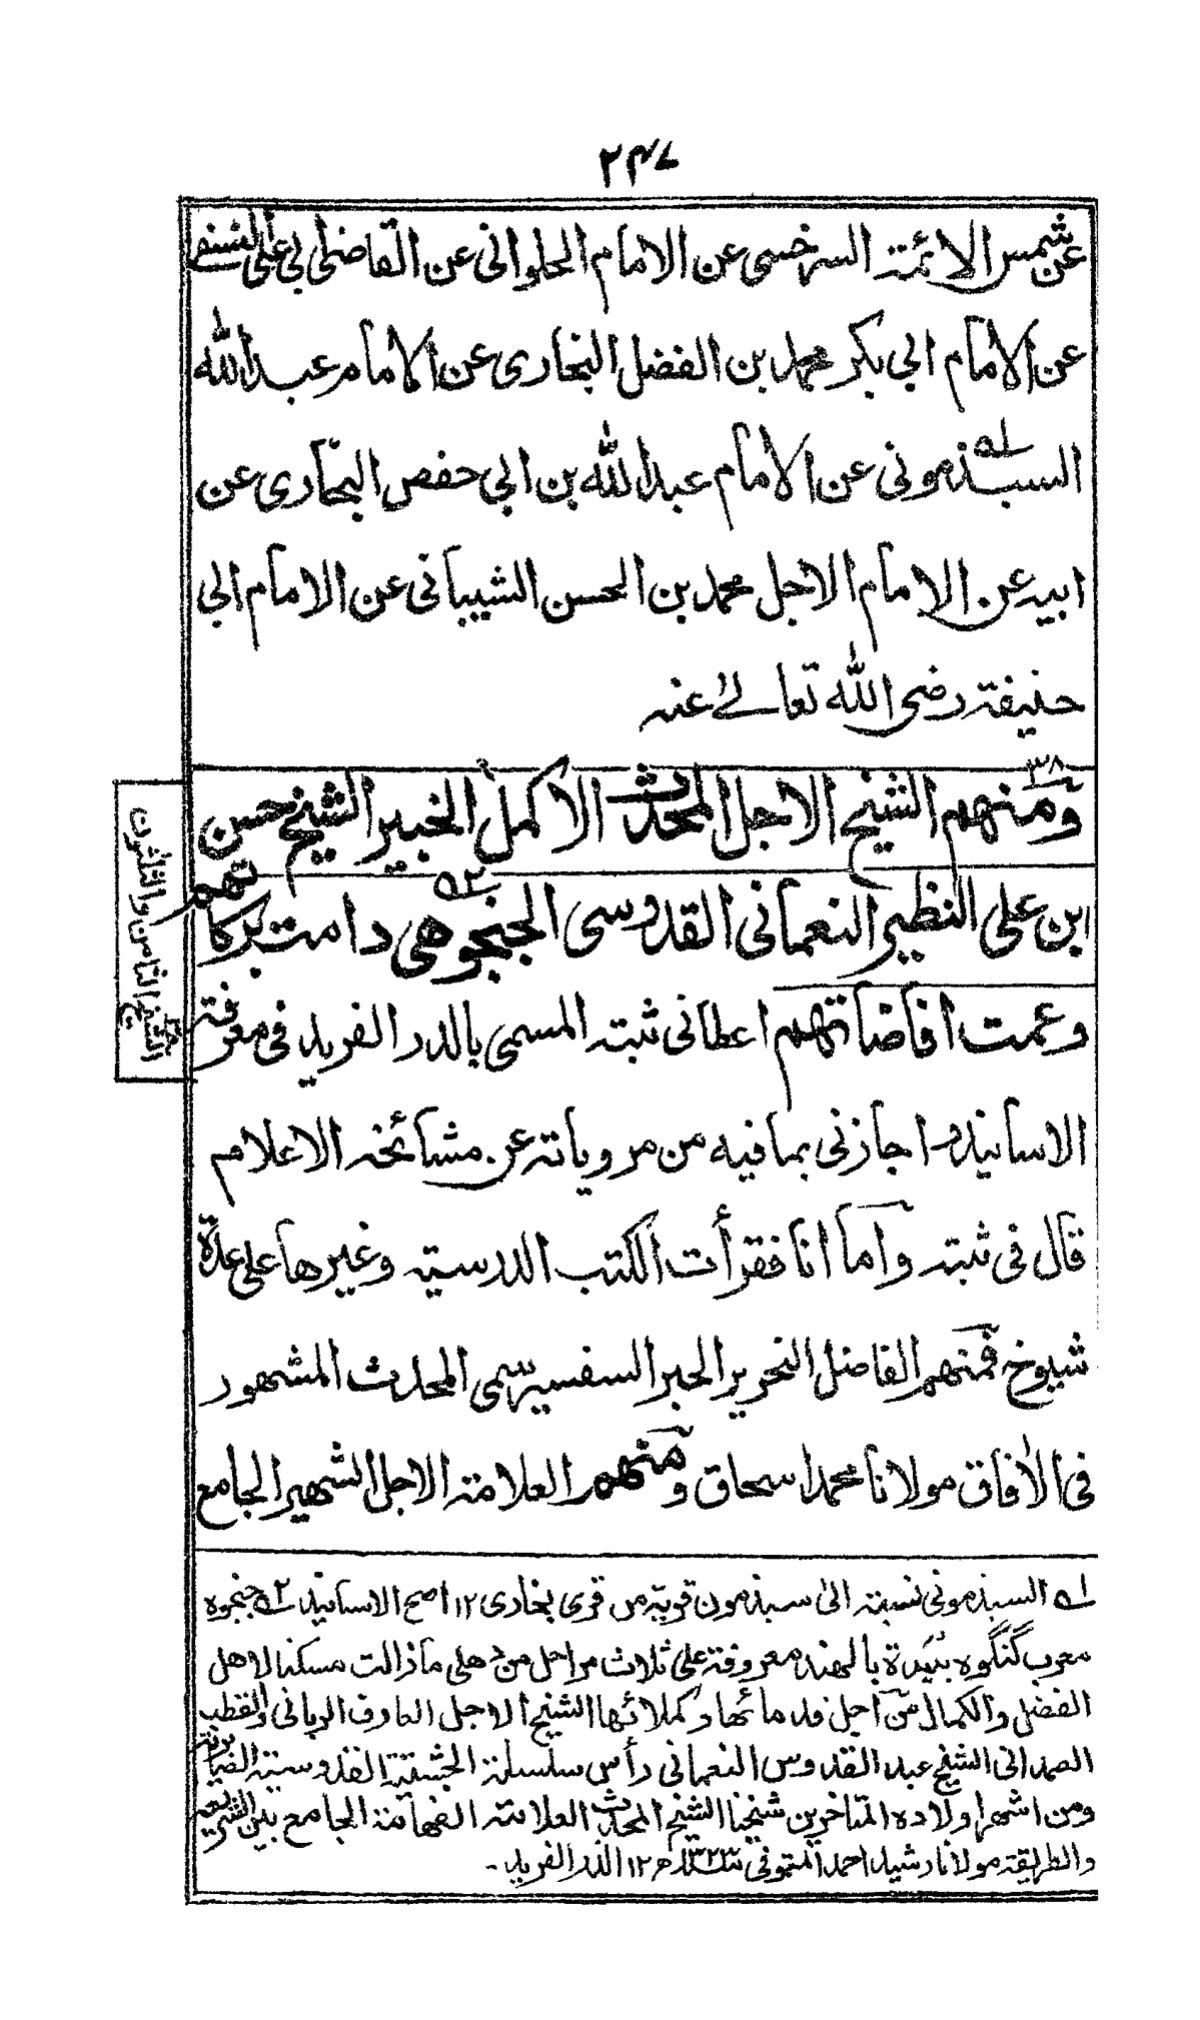 ۲۴۷
عن شمس الائمة السرخسى عن الامام الحلوانى عن القاضى ابى على النسفى
عن الامام ابى بكر محمد بن الفضل البخارى عن الامام عبد الله
السبذمونى عن الامام عبد الله بن ابى حفص البخارى عن
ابيه عن الامام الاجل محمد بن الحسن الشيبانى عن الامام ابى
حنيفة رضى الله تعالى عنه
۳۸
ومنهم الشيخ الاجل المحدث الاكمل الخبير الشيخ حسن
ابن على النظير النعمانى القدوسى الجنجوهى دامت بركاتهم
الشيخ الثامن والثلثون
وعمت افاضاتهم اعطانى ثبته المسمى بالدر الفريد فى معرفة
الاسانيد واجازنى بما فيه من مروياته عن مشائخه الاعلام
قال فى ثبته واما انا فقرأت الكتب الدرسية وغيرها على عدة
شيوخ فمنهم الفاضل النحرير الحبر السفسير سمى المحدث المشهور
فى الآفاق مولانا محمد اسحاق ومنهم العلامة الاجل الشهير الجامع
لـه السبذمونى نسبة الى سبذمون قرية من قرى بخارى ۱۲ اصح الاسانيد ۲ـه جنجوه
معرب گنگوه بليدة بالهند معروفة على ثلاث مراحل من دهلى ما زالت مسكنا لاهل
الفضل والكمال من اجل قدمائها وكملائها الشيخ الاجل العارف الربانى والقطب
الصمدانى الشيخ عبد القدوس النعمانى رأس سلسلة الجشتية القدوسية الصابرية
ومن اشهر اولاده المتاخرين شيخنا الشيخ المحدث العلامة الفهامة الجامع بين الشريعة
والطريقة مولانا رشيد احمد المتوفى سنة ۱۳۲۳ھ ۱۲ الدر الفريد -